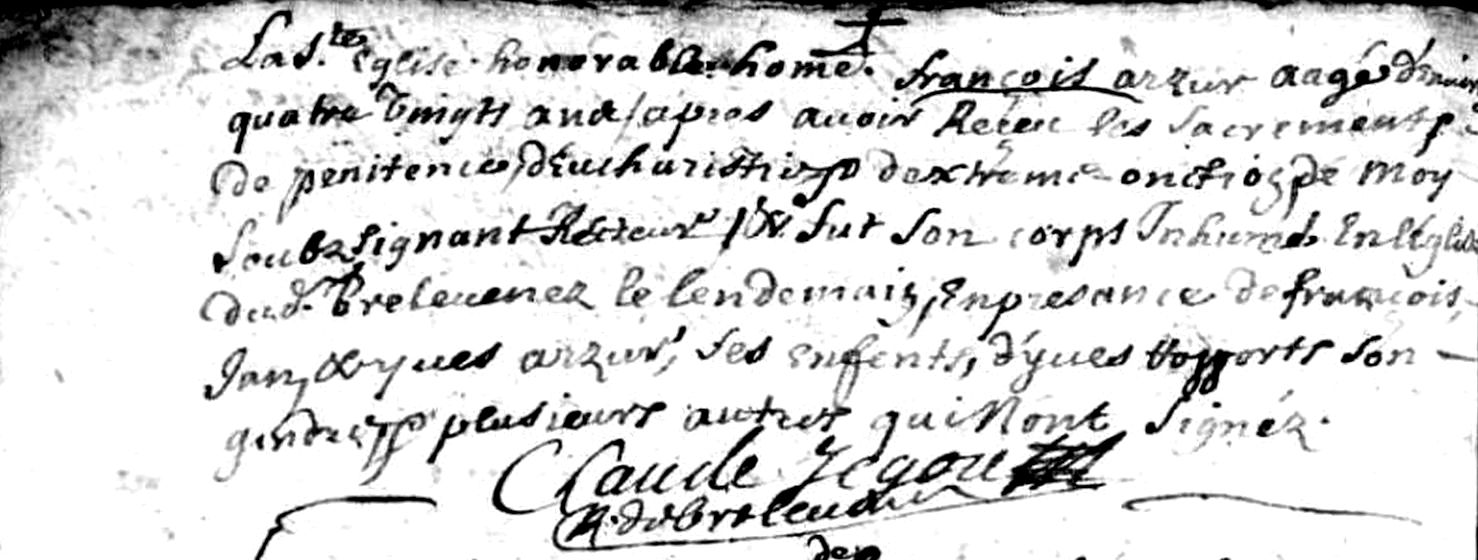 La s.te Eglise honorable home. françois arzur aagé d'environ
quatre vingts ans / apres avoir Receu les sacrements
de pénitence, d'Eucharistie & d'extrème onction de moy
soubzsignant Recteur / & fut son corps Inhumé En l'Eglise
dud. Brelevenez le lendemain, En presance de françois,
Jan, & yves arzur, ses enfents, d'yves topports son
gendre & plusieurs autres qui Nont signéz.
Claude Jegou
R. de brelevenez